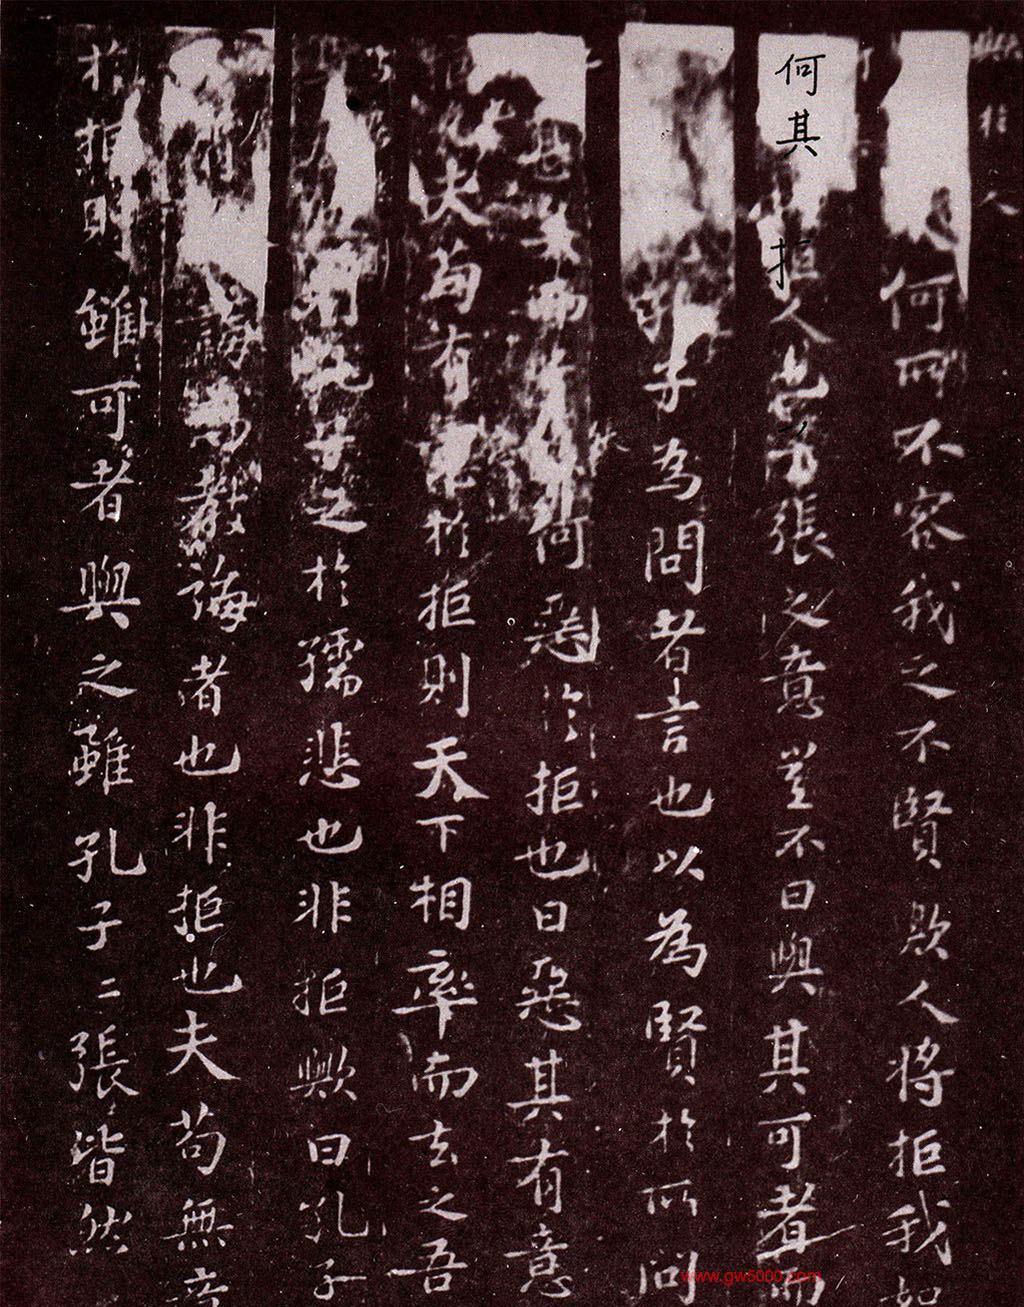 與於人
何所不容我之不賢歟人將拒我如
何其拒人也子張之意豈不曰與其可者而
孔子為問者言也以為賢於所問
何惡於拒也曰惡其有意
夫苟有不於拒則天下相率而去之吾
子之於孺悲也非拒歟曰孔子
誨而教誨者也非拒也夫苟無意
於拒則雖可者與之雖孔子二張皆然
www.gw5000.com